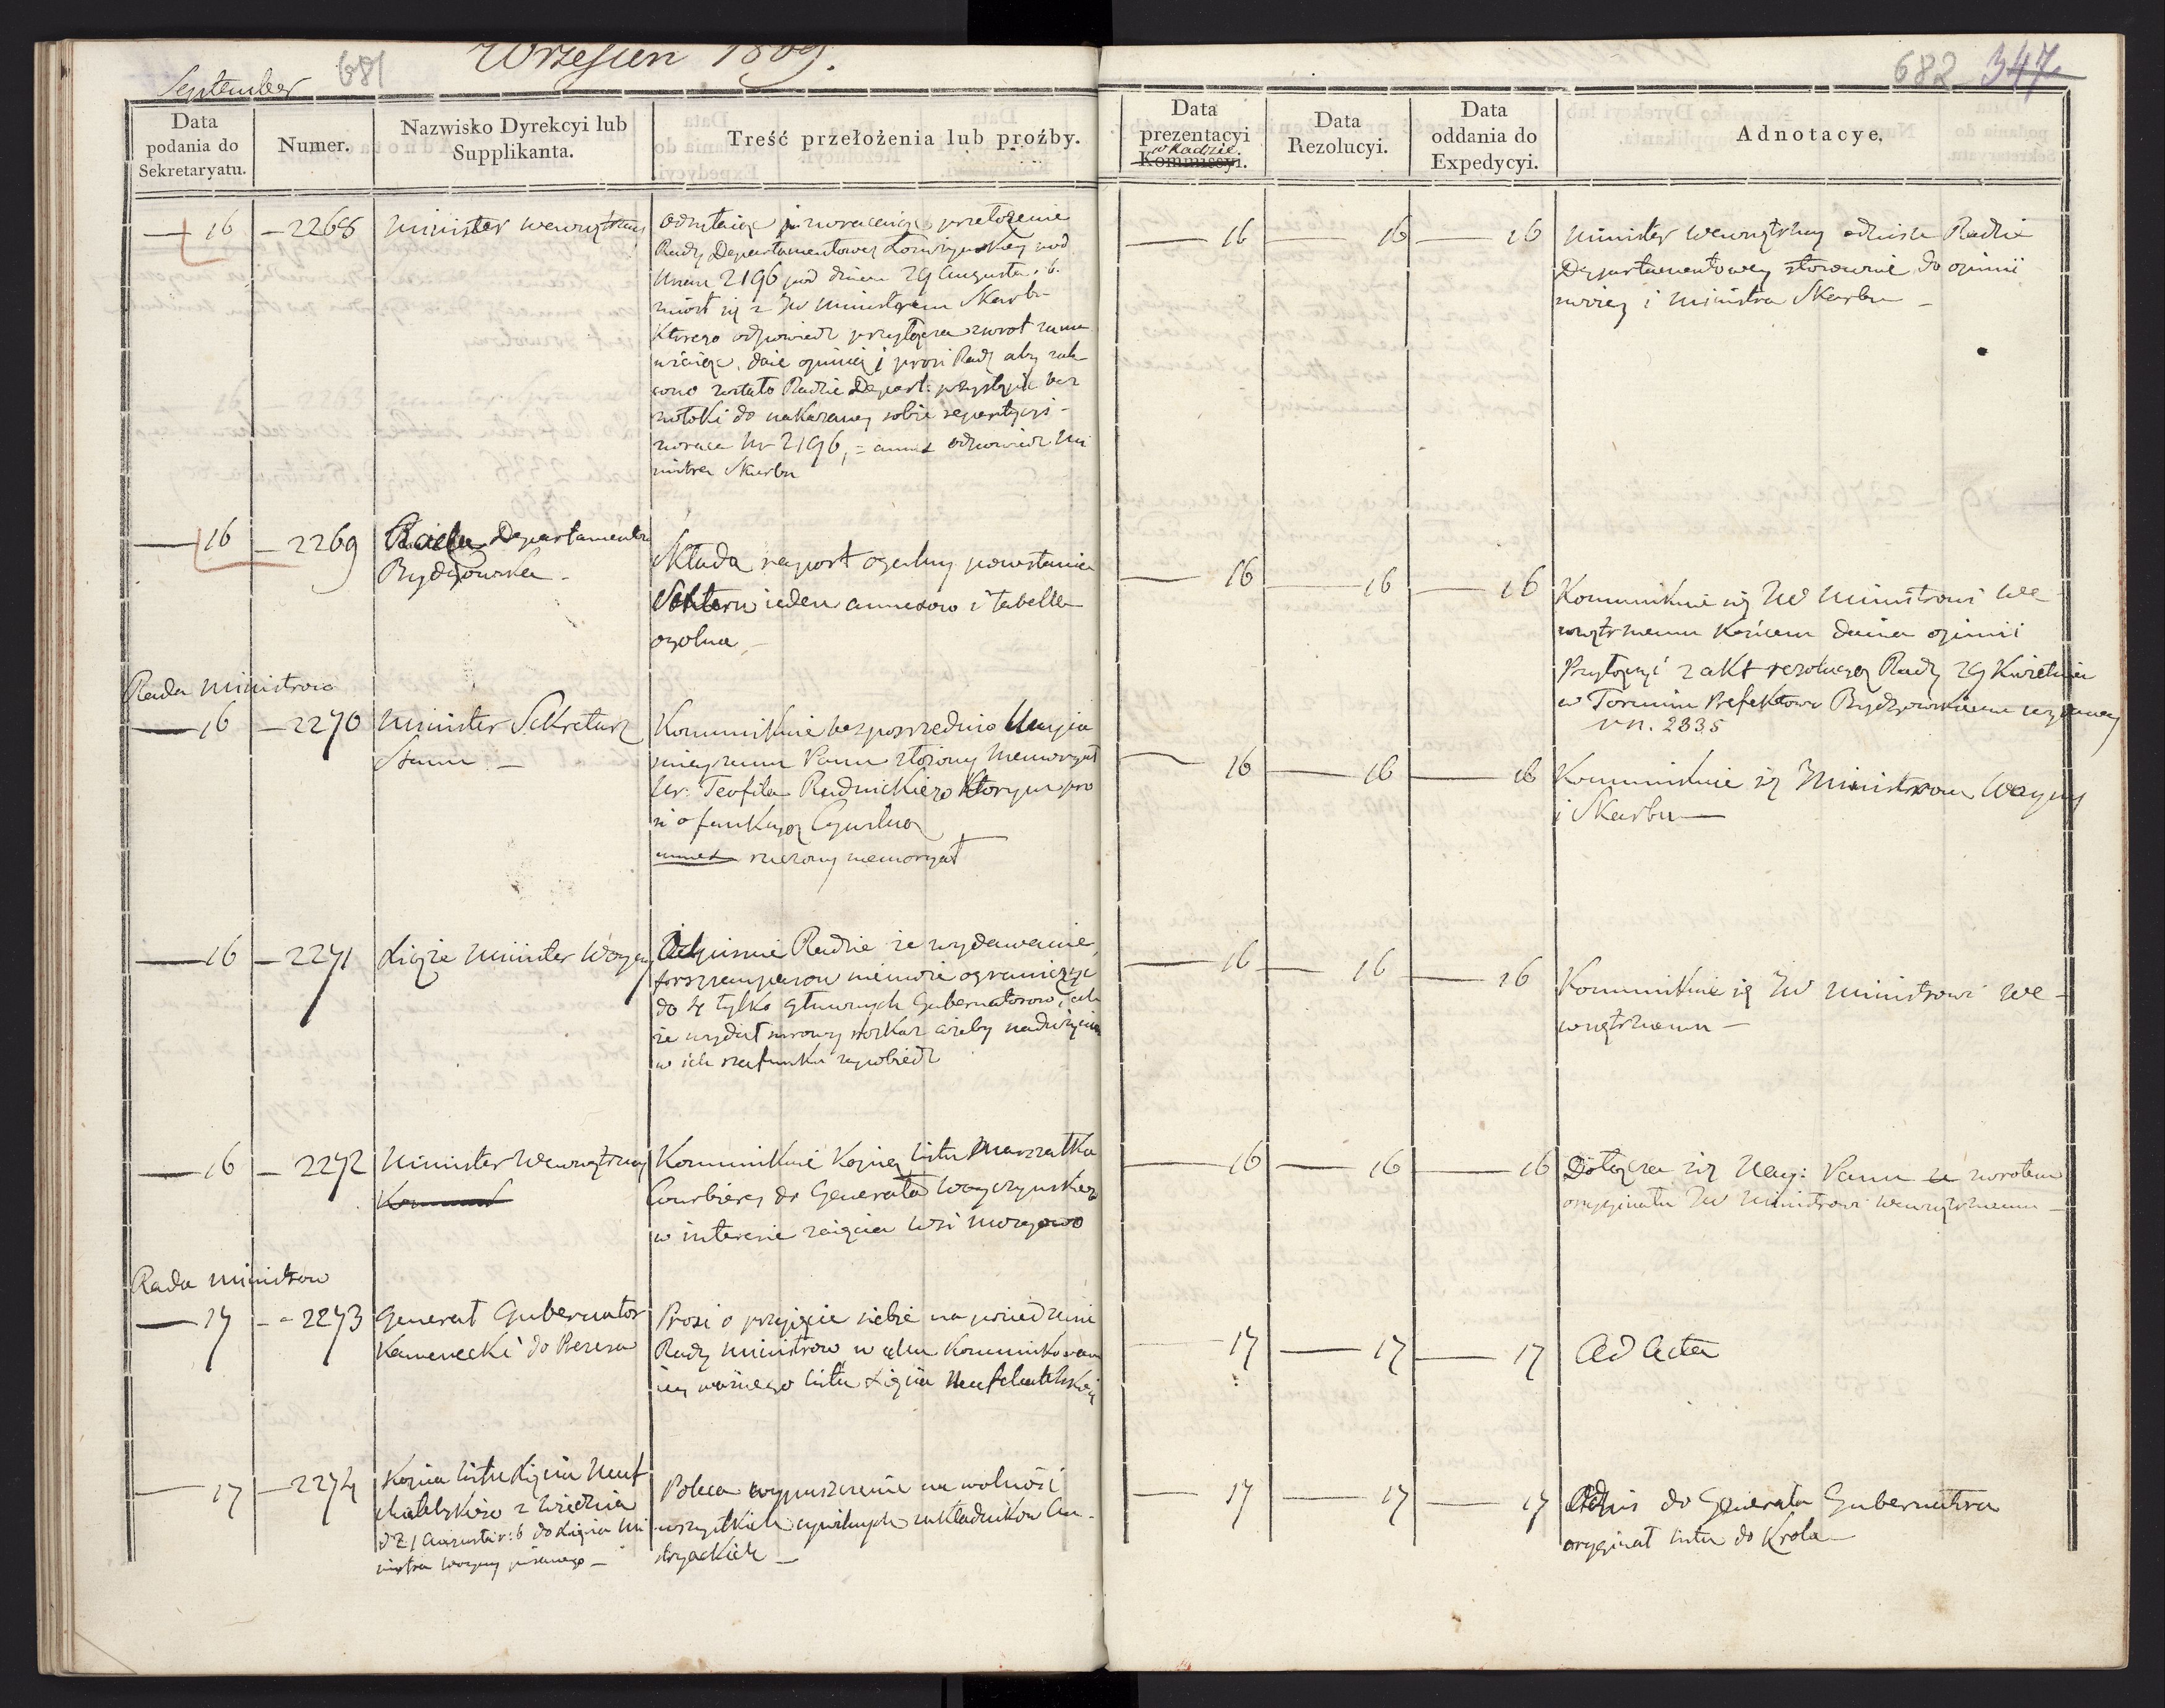 Wrzesien 1809.
September 681
682 347
Data podania do Sekretaryatu.
Numer.
Nazwisko Dyrekcyi lub Supplikanta.
Treść przełożenia lub proźby.
Data prezentacyi w Radzie. Kommissyi.
Data Rezolucyi.
Data oddania do Expedycyi.
Adnotacye.
16 – 2268 Minister wewnętrzny
przełożenie
Rady Departamentowey Łomżynskiey pod
Nrem 2196 pod dniem 29 Augusta r. b.
zniosł się z JW Ministrem Skarbu
Ktorego odpowiedz przyłącza zwrot
daie opinią i prosi Rady aby
zostało Radzie Depart: przystąpic bez
zwłoki do nakazaney sobie repartycyi –
zwraca Nr 2196, = annex odpowiedz Mi
nistra Skarbu
16 16 16
Minister Wewnętrzny Radzie
Departamentowey stosownie do opinii
swoiey i Ministra Skarbu –
16 – 2269 Rada Departamentu
Bydgowska –
Składa raport ogolny powstania
jeden annexow i tabella
ogolna –
16 16 16
Kommunikuie się JW Ministrowi We-
wnętrznemu Końcem dania opinii
Przyłączyć z akt rezolucyą Rady 29 Kwietnia
w Toruniu Prefektowi Bydgowskiemu
n. 2335
Rada Ministrow
16 – 2270 Minister Sekretarz
Stanu –
Kommunikuie bezposrzednio Nayia
snieyszemu Panu złożony Memoryał
Ur: Teofila Rudnickiego Ktorym pro
si o funkcyą Cywilną
annex rzeczony memoryał
16 16 16
Kommunikuie się Ministrom Woyny
i Skarbu –
16 – 2271 Xiąże Minister Woyny
Odpisuie Radzie ze wydawanie
forszpanpasow niemoże ograniczyć
do 4 tylko głownych Gubernatorow,
ze wydał surowy rozkaz ażeby nadużyciu
w ich szafunku zapobiedz
16 16 16
Kommunikuie się JW Ministrowi We-
wnętrznemu –
16 – 2272 Minister Wewnętrzny
Kommunikuie Kopią listu Marszałka
do Generała Woyczynskiego
w interesie zaięcia wsi
16 16 16
Dołącza się Nay: Panu ze zwrotem
oryginału JW Ministrowi Wewnętrznemu –
Rada Ministrow
17 – 2273 Generał Gubernator
Kamenecki do Prezesa
Prosi o przyięcie siebie na posiedzenie
Rady Ministrow w celu Kommunikowan
iey ważnego listu Xięcia Neufchatelskiey
17 17 17
Ad Acta
17 – 2274 Kopia listu Xięcia Neuf
chatelskiego z Wiednia
Augusta r: b do Xięcia Mi
nistra Woyny pisanego –
Poleca wypuszczenie na wolność
wszystkich cywilnych zakładnikow Au-
stryackich –
17 17 17
Odpis do Generała Gubernatora
oryginał listu do Krola –